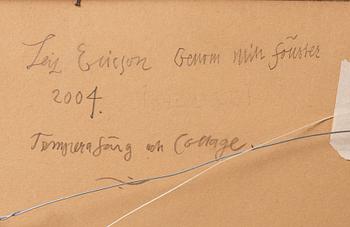 Leif Ericson Genom mitt fönster
2004.
Temperafärg och Collage.